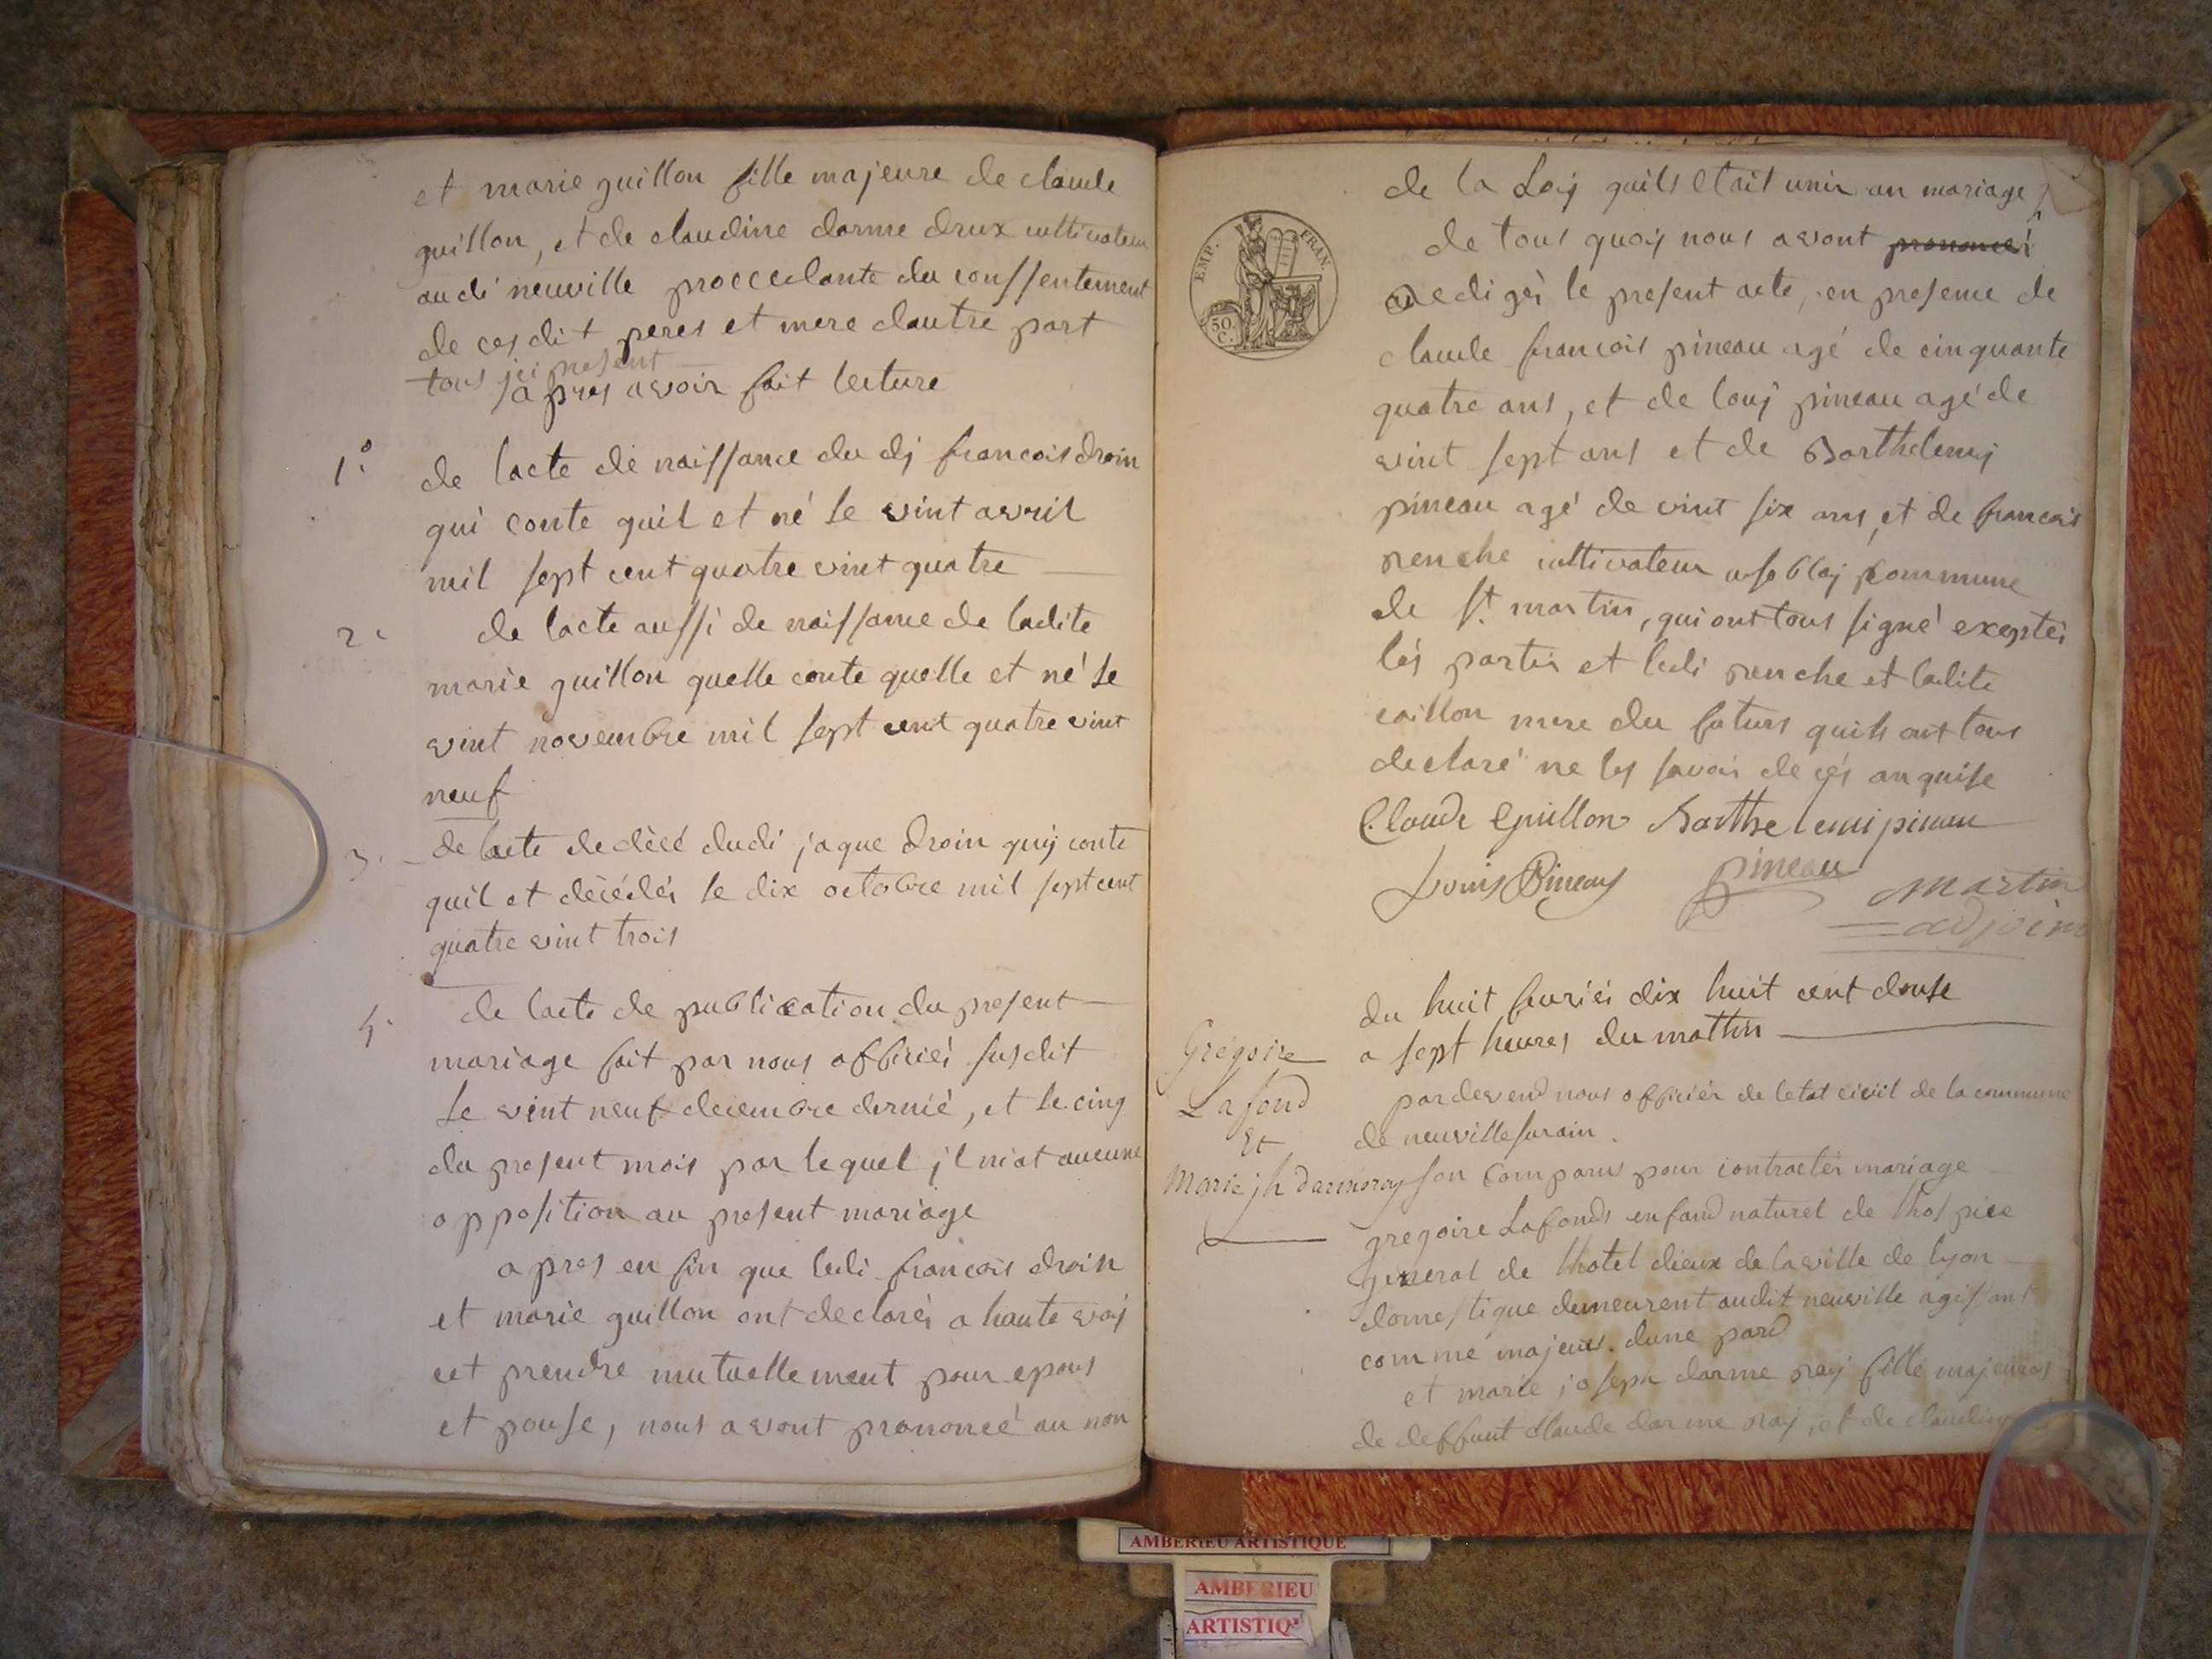 et marie guillon fille majeure de claude
guillon, et de claudine darme drux cultivateur
audi neuville proccedante du conssentement
de ces dit peres et mere dautre part
tous ici present
apres avoir fait lecture
1° de lacte de naissance du dj francois droin
qui conte quil et né le vint avril
mil sept cent quatre vint quatre
2 de lacte aussi de naissance de ladite
marie guillon quelle conte quelle et né le
vint novembre mil sept cent quatre vint
neuf
3. de lacte de décé dudi jaque droin quij conte
quil et décédéi le dix octobre mil sept cent
quatre vint trois
4 de lacte de publication du present
mariage fait par nous officiéi susdit
le vint neuf decembre dernié, et le cinq
du present mois par lequel jl niat aucune
opposition au present mariage
apres en fin que ledi francois droin
et marie guillon ont declaréi a haute voij
cet prendre mutuellement pour epous
et pouse, nous avont prononcé au non
de la Loij quils etait unis au mariage
de tous quoij nous avont
redigéi le present acte, en presence de
claude francois pineau agé de cinquante
quatre ans, et de louj pineau agé de
vint sept ans et de Barthelemij
pineau agé de vint six ans, et de francois
penche cultivateur a soblaj commune
de St. martin, qui ont tous signé exeptéi
léj partis et ledi penche et ladite
caillon mere du futurs quils ont tous
declaré ne les savoir de céj anquise
Claude Guillon Barthelemi pineau
Louis Pineau pineau
Martin
adjoint
EMP. FRAN.
50. C.
du huit fevriéi dix huit cent douse
a sept heures du mattin
Grégoire
Lafond
Et
Marie jh darmeray
pardevend nous officiér de letat civil de la commune
de neuville surain.
son comparus pour contractér mariage
gregoire Lafonds enfand naturel de lhospice
general de lhotel dieux de laville de lyon
domestique demeurent audit neuville agissant
comme majeurs. dune pard
et marie joseph darme raij fille majeures
de deffunt Claude darme raij, et de claudine
AMBERIEU ARTISTIQUE
AMBERIEU
ARTISTIQ